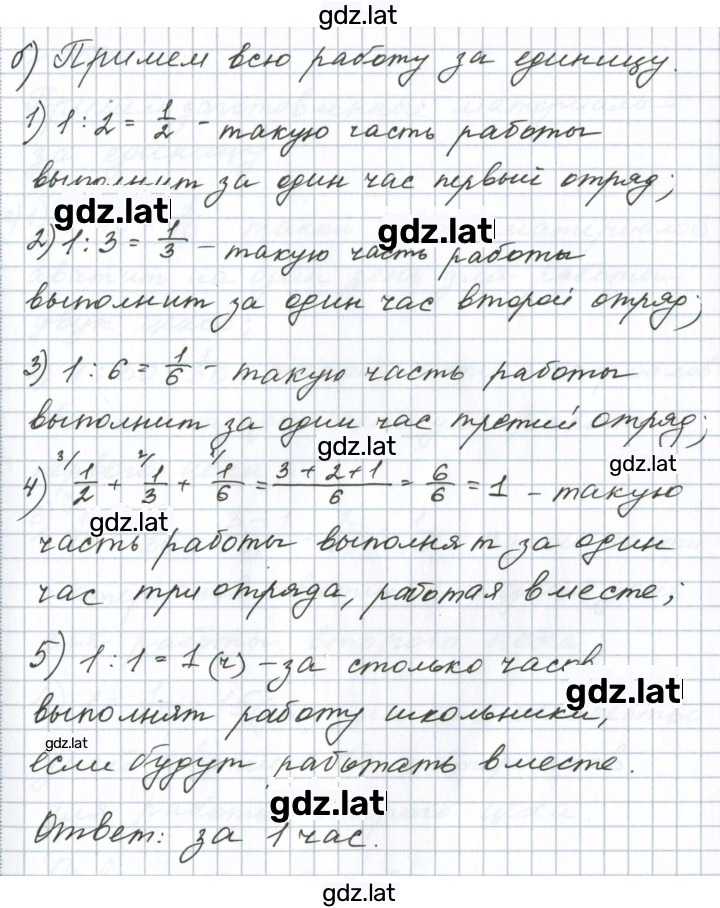 gdz.lat
б) Примем всю работу за единицу.
1) 1 : 2 = 1/2 - такую часть работы
выполнит за один час первый отряд;
gdz.lat
gdz.lat
2) 1 : 3 = 1/3 - такую часть работы
выполнит за один час второй отряд;
3) 1 : 6 = 1/6 - такую часть работы
выполнит за один час третий отряд;
gdz.lat
gdz.lat
4) ³⁄1/2 + ²⁄1/3 + ¹⁄1/6 = (3 + 2 + 1)/6 = 6/6 = 1 - такую
gdz.lat
часть работы выполнят за один
час три отряда, работая вместе;
5) 1 : 1 = 1 (ч) - за столько часов
gdz.lat
выполнят работу школьники,
gdz.lat
если будут работать вместе.
gdz.lat
Ответ: за 1 час.
gdz.lat